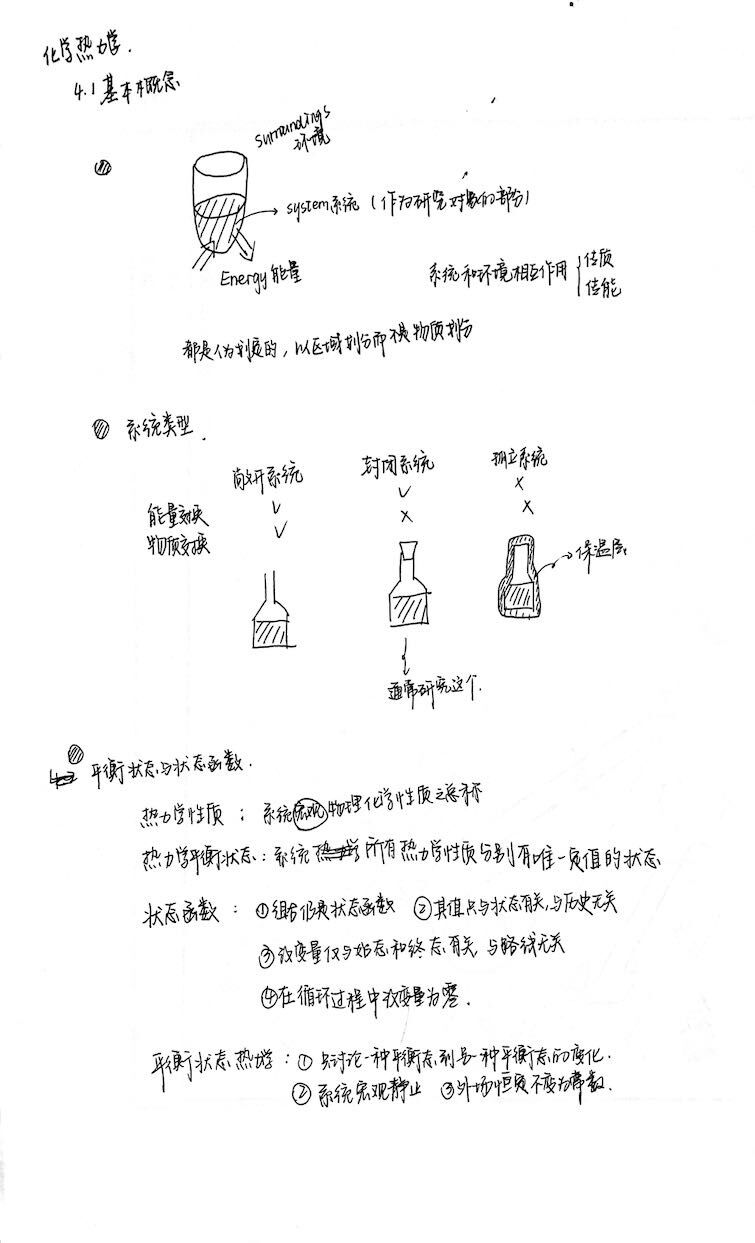 化学热力学.
4.1 基本概念
surroundings
环境
system系统（作为研究对象的部分）
Energy 能量
系统和环境相互作用 { 传质
传能
都是人为划定的，以区域划分而不是物质划分
系统类型.
敞开系统 封闭系统 孤立系统
能量交换 ✓ ✓ ×
物质交换 ✓ × ×
保温层
通常研究这个.
平衡状态与状态函数.
热力学性质：系统宏观物理化学性质之总称
热力学平衡状态：系统所有热力学性质分别有唯一定值的状态
状态函数：①组合仍是状态函数 ②其值只与状态有关,与历史无关
③改变量仅与始态和终态有关,与路线无关
④在循环过程中改变量为零.
平衡状态热力学：①只讨论一种平衡态到另一种平衡态的变化.
②系统宏观静止 ③外场恒定不变为常数.